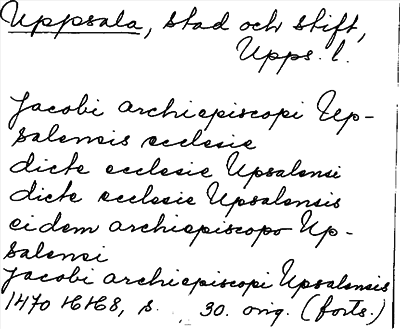 Uppsala, stad och stift,
Upps. l.
Jacobi archiepiscopi Up-
salensis ecclesie
dicte ecclesie Upsalensi
dicte ecclesie Upsalensis
eidem archiepiscopo Up-
salensi
Jacobi archiepiscopi Upsalensis
1470 16168, s. 30. orig. (forts.)